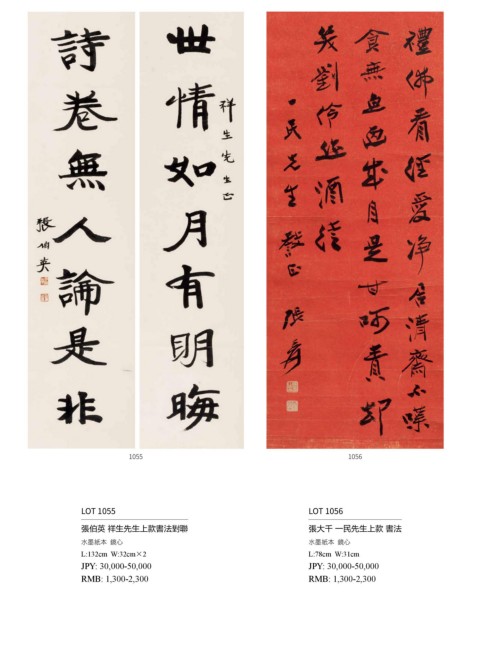 世情如月有明晦
祥生先生正
詩卷無人論是非
張伯英
禮佛看經愛淨居清齋不
食無 月是甘呵責却
笑劉伶 酒
一民先生 正 張爰
1055
1056
LOT 1055
張伯英 祥生先生上款書法對聯
水墨紙本 鏡心
L:132cm W:32cm×2
JPY: 30,000-50,000
RMB: 1,300-2,300
LOT 1056
張大千 一民先生上款 書法
水墨紙本 鏡心
L:78cm W:31cm
JPY: 30,000-50,000
RMB: 1,300-2,300